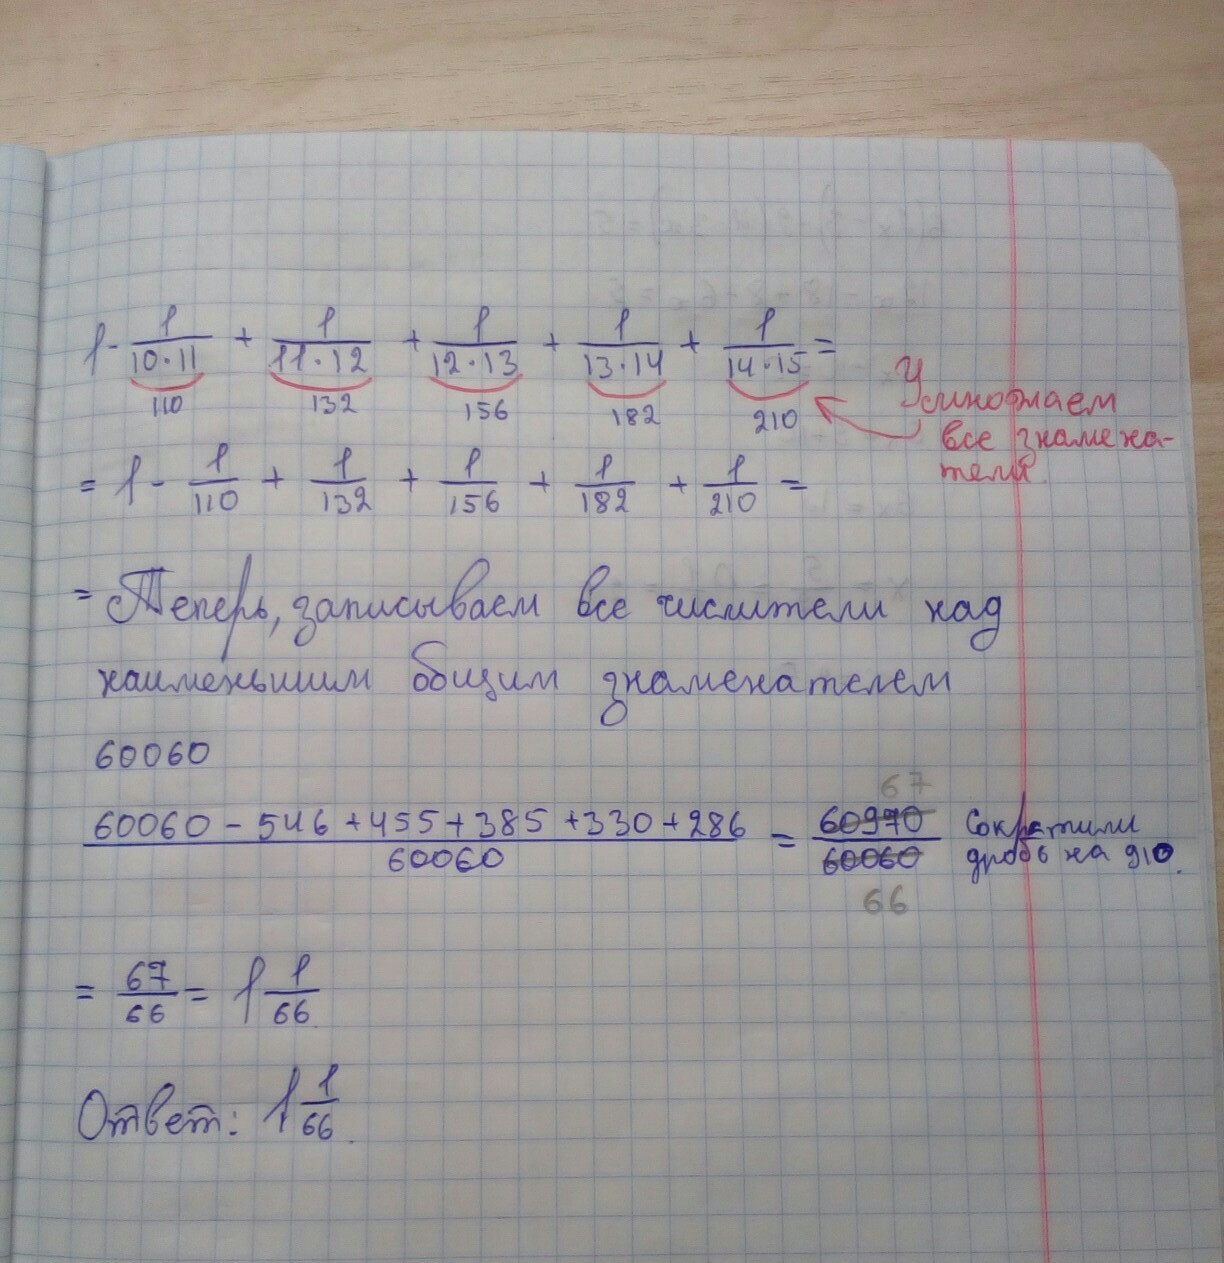 1 - 1/10·11 + 1/11·12 + 1/12·13 + 1/13·14 + 1/14·15 =
110 132 156 182 210
Умножаем
все знамена-
тели.
= 1 - 1/110 + 1/132 + 1/156 + 1/182 + 1/210 =
= Теперь, записываем все числители над
наименьшим общим знаменателем
60060
60060 - 546 + 455 + 385 + 330 + 286 / 60060 = 60970 / 60060 Сократили
67
66
дробь на 910.
= 67/66 = 1 1/66
Ответ: 1 1/66.